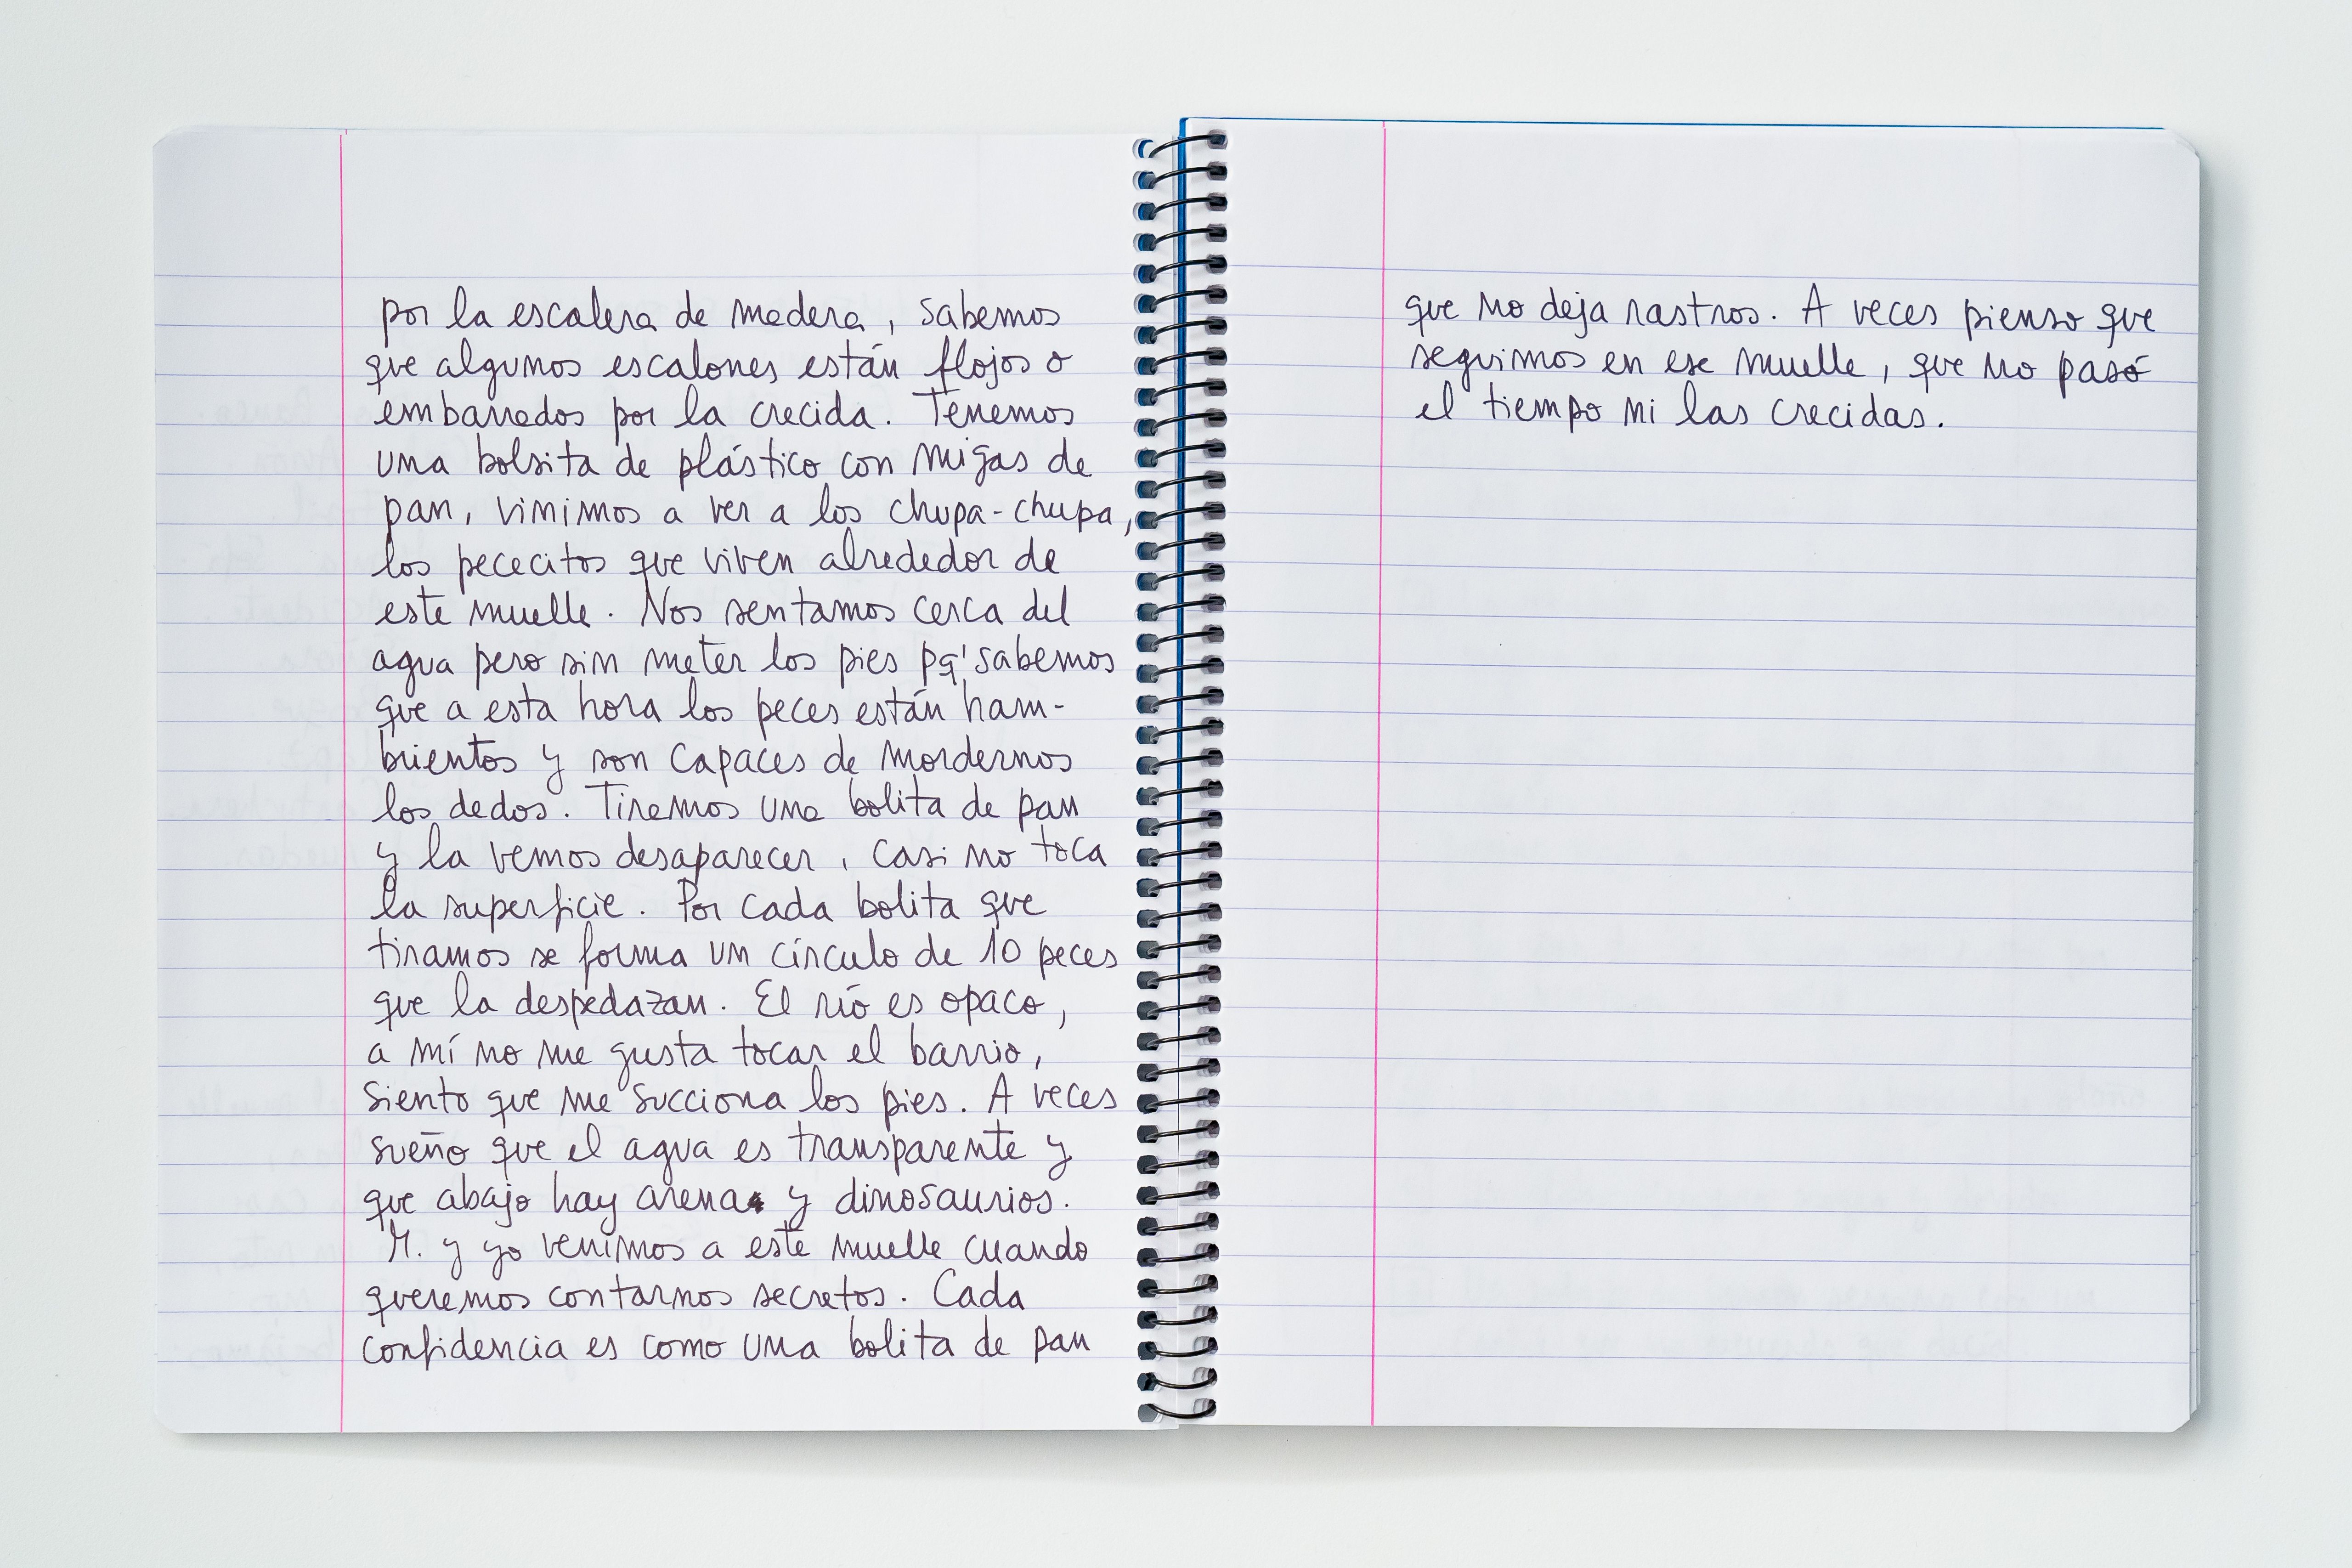 por la escalera de madera, sabemos
que algunos escalones están flojos o
embarrados por la crecida. Tenemos
una bolsita de plástico con migas de
pan, vinimos a ver a los chupa-chupa,
los pececitos que viven alrededor de
este muelle. Nos sentamos cerca del
agua pero sin meter los pies pq' sabemos
que a esta hora los peces están ham-
brientos y son capaces de mordernos
los dedos. Tiremos una bolita de pan
y la vemos desaparecer, casi no toca
la superficie. Por cada bolita que
tiramos se forma un círculo de 10 peces
que la despedazan. El río es opaco,
a mí no me gusta tocar el barrio,
siento que me succiona los pies. A veces
sueño que el agua es transparente y
que abajo hay arena y dinosaurios.
M. y yo venimos a este muelle cuando
queremos contarnos secretos. Cada
confidencia es como una bolita de pan
que no deja rastros. A veces pienso que
seguimos en ese muelle, que no pasó
el tiempo ni las crecidas.